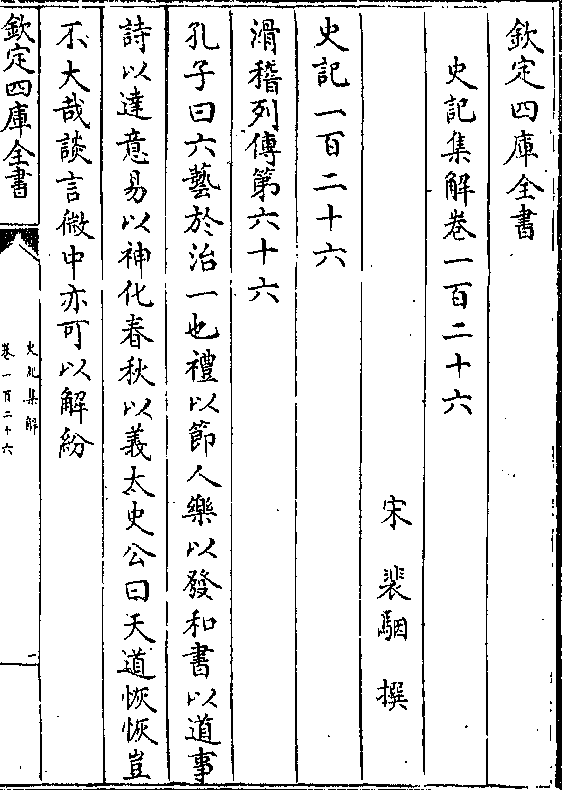 欽定四庫全書
史記集解卷一百二十六
宋 裴駰 撰
史記一百二十六
滑稽列傳第六十六
孔子曰六藝於治一也禮以節人樂以發和書以道事
詩以達意易以神化春秋以義太史公曰天道恢恢豈
不大哉談言微中亦可以解紛
欽定四庫全書
史記集解
卷一百二十六
一